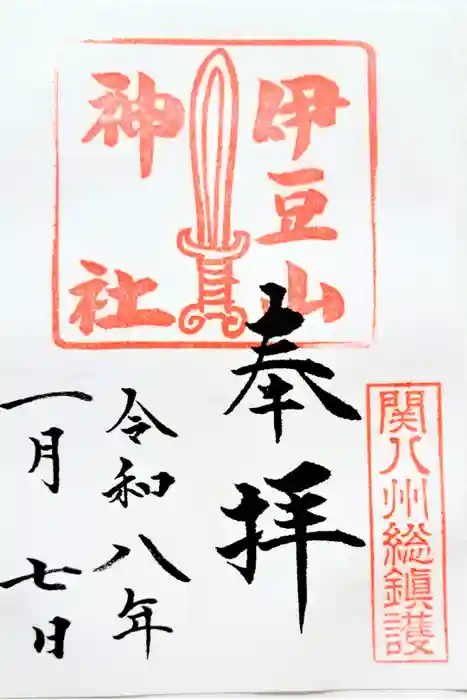 伊豆山
神社
奉拝
関八州総鎮護
令和八年
一月七日